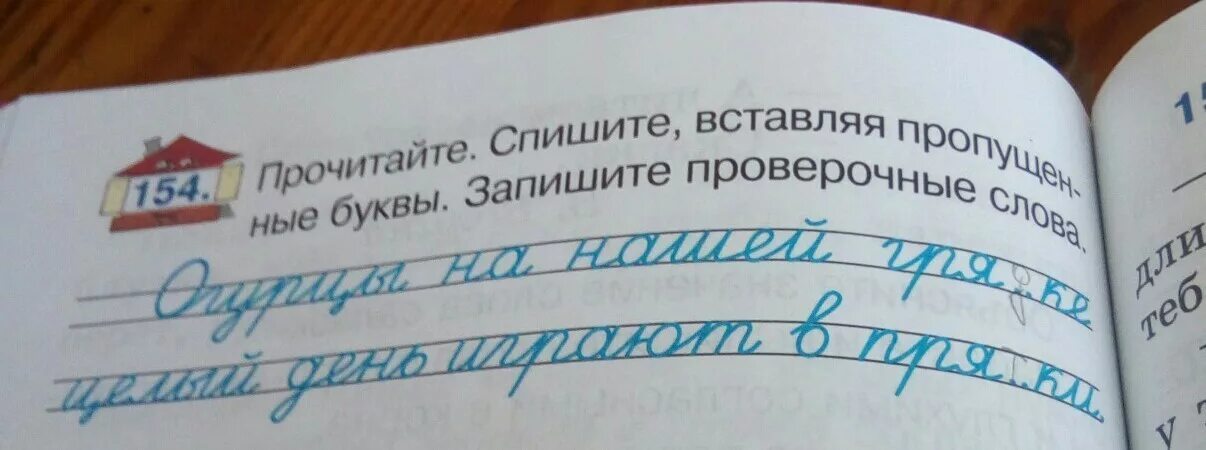 154. Прочитайте. Спишите, вставляя пропущен-
ные буквы. Запишите проверочные слова.
Огурцы на нашей гря.ке
целый день играют в пря.ки.
1
дли
теб
у